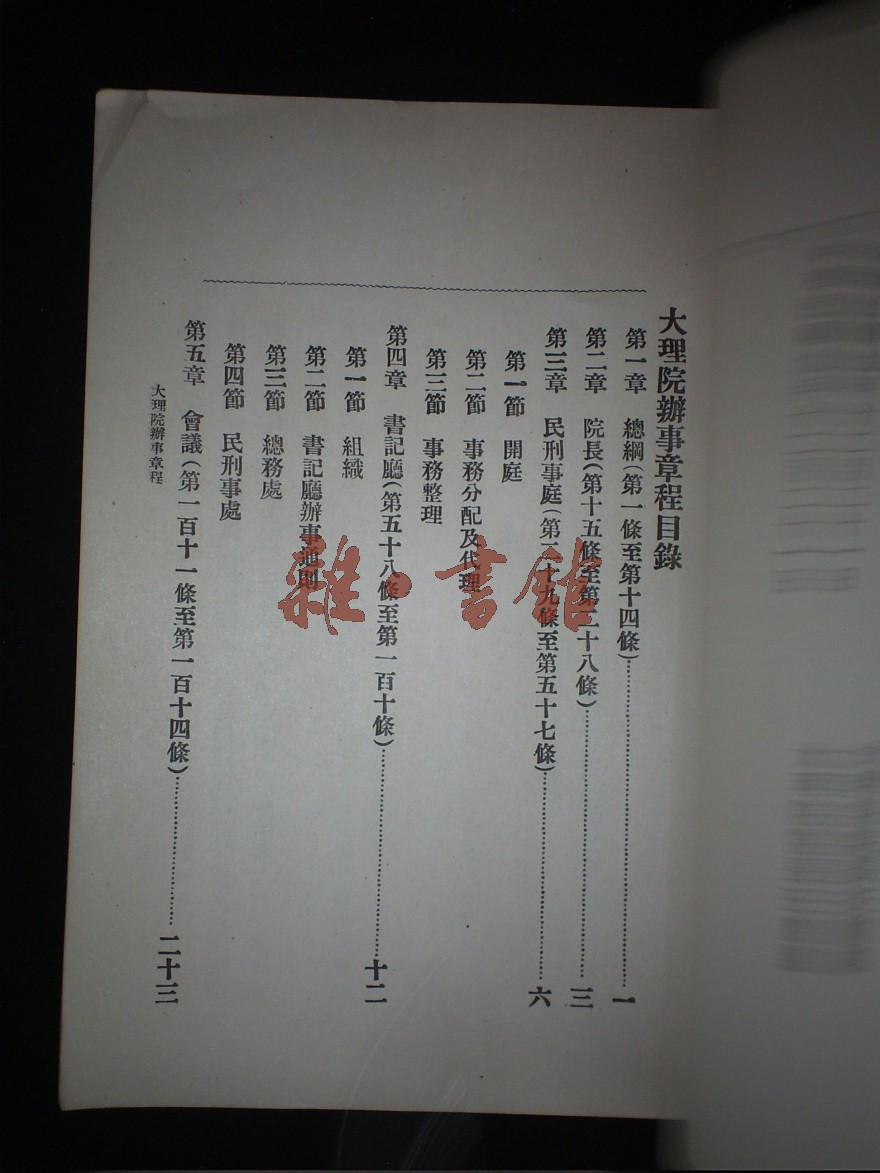 大理院辦事章程目錄
第一章 總綱(第一條至第十四條)……一
第二章 院長(第十五條至第二十八條)……三
第三章 民刑事庭(第二十九條至第五十七條)……六
第一節 開庭
第二節 事務分配及代理
第三節 事務整理
第四章 書記廳(第五十八條至第一百十條)……十二
第一節 組織
第二節 書記廳辦事通則
第三節 總務處
第四節 民刑事處
第五章 會議(第一百十一條至第一百十四條)……二十三
大理院辦事章程
雜·書館